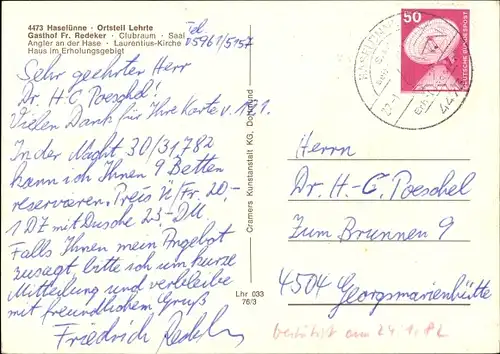 4473 Haselünne · Ortsteil Lehrte
Gasthof Fr. Redeker · Clubraum · Saal
Angler an der Hase · Laurentius-Kirche
Haus im Erholungsgebiet
05961/5157
Sehr geehrter Herr
Dr. H-C Poeschel!
Vielen Dank für Ihre Karte v. 19.1.
In der Nacht 30/31.7.82
kann ich Ihnen 9 Betten
reservieren. Preis Ü/Fr. 20,-
1 DZ mit Dusche 23,- DM.
Falls Ihnen mein Angebot
zusagt bitte ich um kurze
Mitteilung und verbleibe
mit freundlichem Gruß
Friedrich Redeker
Cramers Kunstanstalt KG, Dortmund
Lhr 033
76/3
50
DEUTSCHE BUNDESPOST
4473
Herrn
Dr. H.-C. Poeschel
Zum Brunnen 9
4504 Georgsmarienhütte
bestätigt am 24.1.82